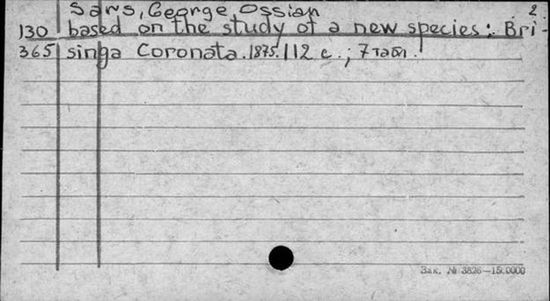 Sars, George Ossian 2.
130 based on the study of a new species: Bri-
365 singa Coronata. 1875. 112 c.; 7 табл.
Зак. № 3826—150000